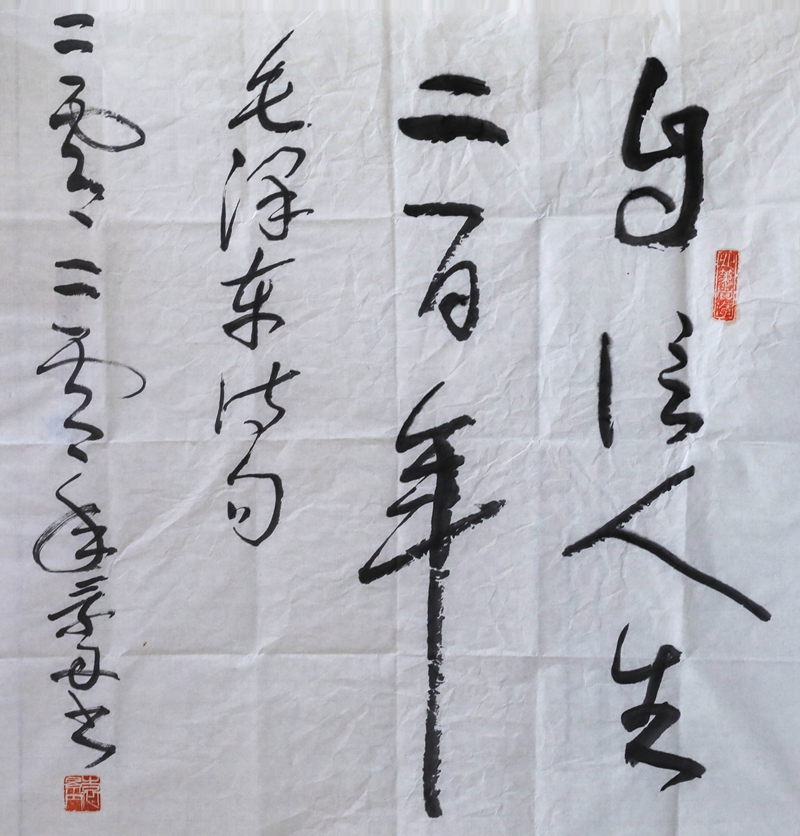 自信人生
二百年
毛泽东诗句
二零二零年书